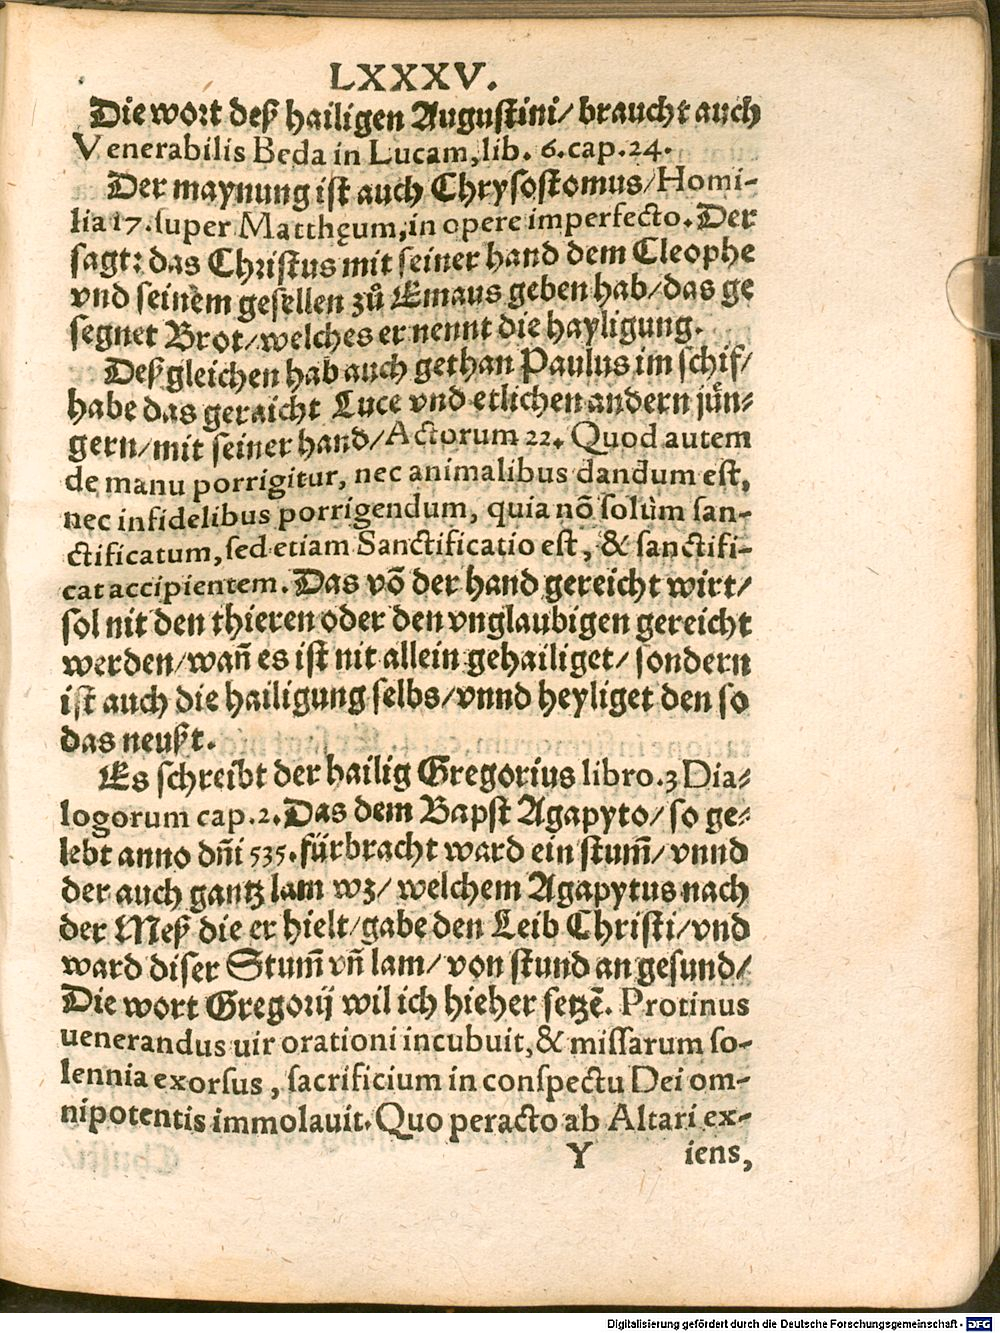 LXXXV.
Die wort deß hailigen Augustini/ braucht auch
Venerabilis Beda in Lucam, lib. 6. cap. 24.
Der maynung ist auch Chrysostomus/ Homi-
lia 17. super Matthęum, in opere imperfecto. Der
sagt: das Christus mit seiner hand dem Cleophe
vnd seinem gesellen zů Emaus geben hab/ das ge
segnet Brot/ welches er nennt die hayligung.
Deß gleichen hab auch gethan Paulus im schif/
habe das geraicht Luce vnd etlichen andern jün-
gern/ mit seiner hand/ Actorum 22. Quod autem
de manu porrigitur, nec animalibus dandum est,
nec infidelibus porrigendum, quia nõ solùm san-
ctificatum, sed etiam Sanctificatio est, & sanctifi-
cat accipientem. Das võ der hand gereicht wirt/
sol nit den thieren oder den vnglaubigen gereicht
werden/ wañ es ist nit allein gehailiget/ sondern
ist auch die hailigung selbs/ vnnd heyliget den so
das neußt.
Es schreibt der hailig Gregorius libro. 3 Dia-
logorum cap. 2. Das dem Bapst Agapyto/ so ge-
lebt anno dñi 535. fürbracht ward ein stum̃/ vnnd
der auch gantz lam wz/ welchem Agapytus nach
der Meß die er hielt/ gabe den Leib Christi/ vnd
ward diser Stum̃ vñ lam/ von stund an gesund/
Die wort Gregorij wil ich hieher setzẽ. Protinus
uenerandus uir orationi incubuit, & missarum so-
lennia exorsus, sacrificium in conspectu Dei om-
nipotentis immolauit. Quo peracto ab Altari ex-
Y iens,
Digitalisierung gefördert durch die Deutsche Forschungsgemeinschaft - DFG